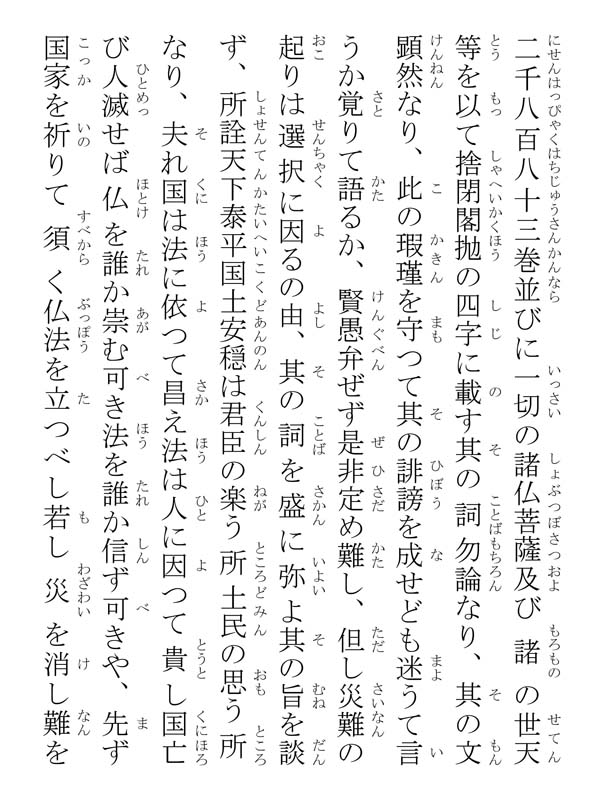 二千八百八十三巻並びに一切の諸仏菩薩及び諸の世天
等を以て捨閉閣抛の四字に載す其の詞勿論なり、其の文
顕然なり、此の瑕瑾を守つて其の誹謗を成せども迷うて言
うか覚りて語るか、賢愚弁ぜず是非定め難し、但し災難の
起りは選択に因るの由、其の詞を盛に弥よ其の旨を談
ず、所詮天下泰平国土安穏は君臣の楽う所土民の思う所
なり、夫れ国は法に依つて昌え法は人に因つて貴し国亡
び人滅せば仏を誰か崇む可き法を誰か信ず可きや、先ず
国家を祈りて須く仏法を立つべし若し災を消し難を